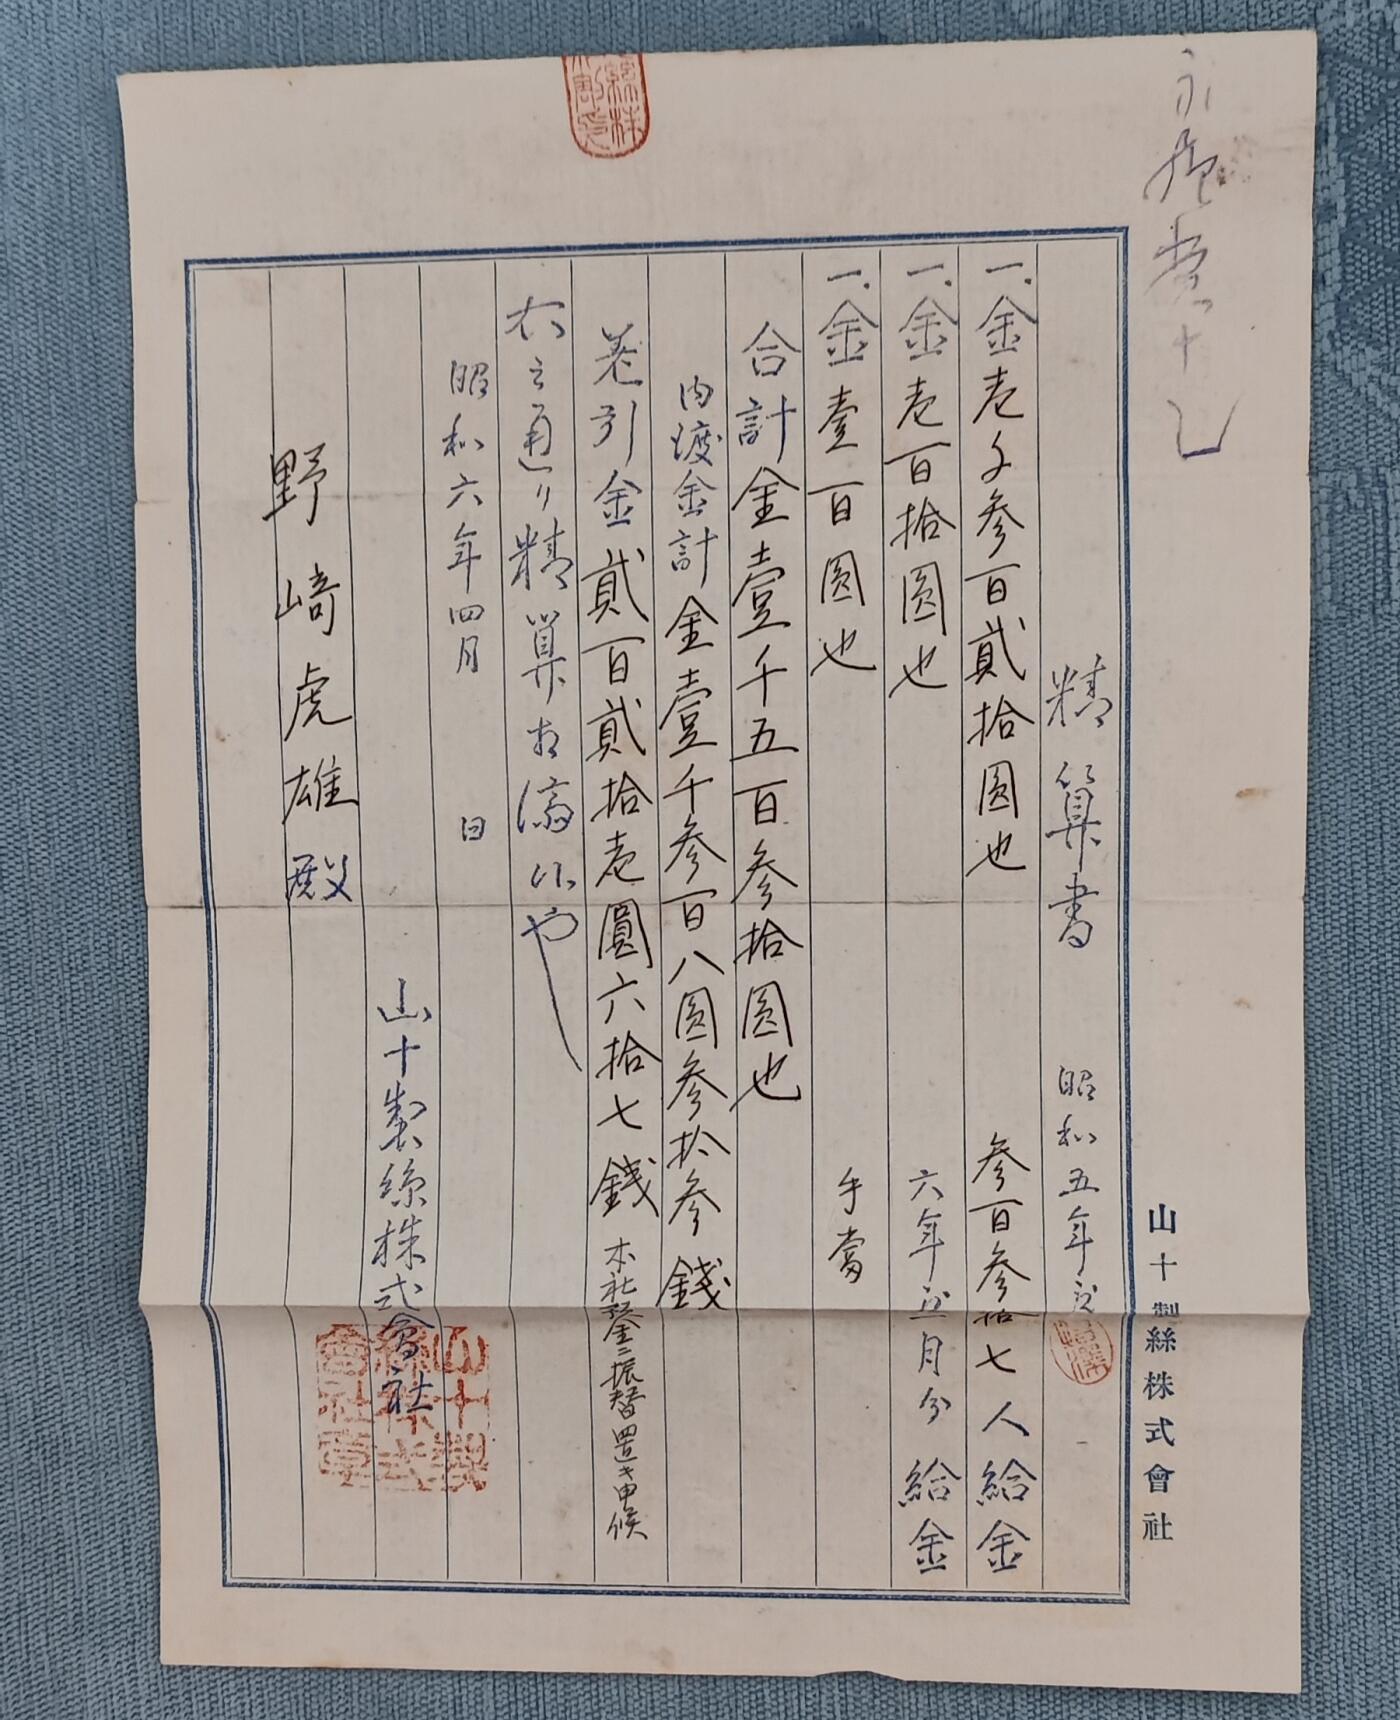 精算書 昭和五年度
一、金壱千参百貳拾圓也 参百参拾七人給金
一、金壱百拾圓也 六年 月分給金
一、金壹百圓也 手當
合計金壹千五百参拾圓也
内渡金計金壹千参百八圓参拾参錢
差引金貳百貳拾壱圓六拾七錢 本社預金ニ振替置キ申候
右之通リ精算相濟候也
昭和六年四月 日
山十製絲株式會社
野﨑虎雄殿
山十製絲株式會社
山十製絲株式會社章